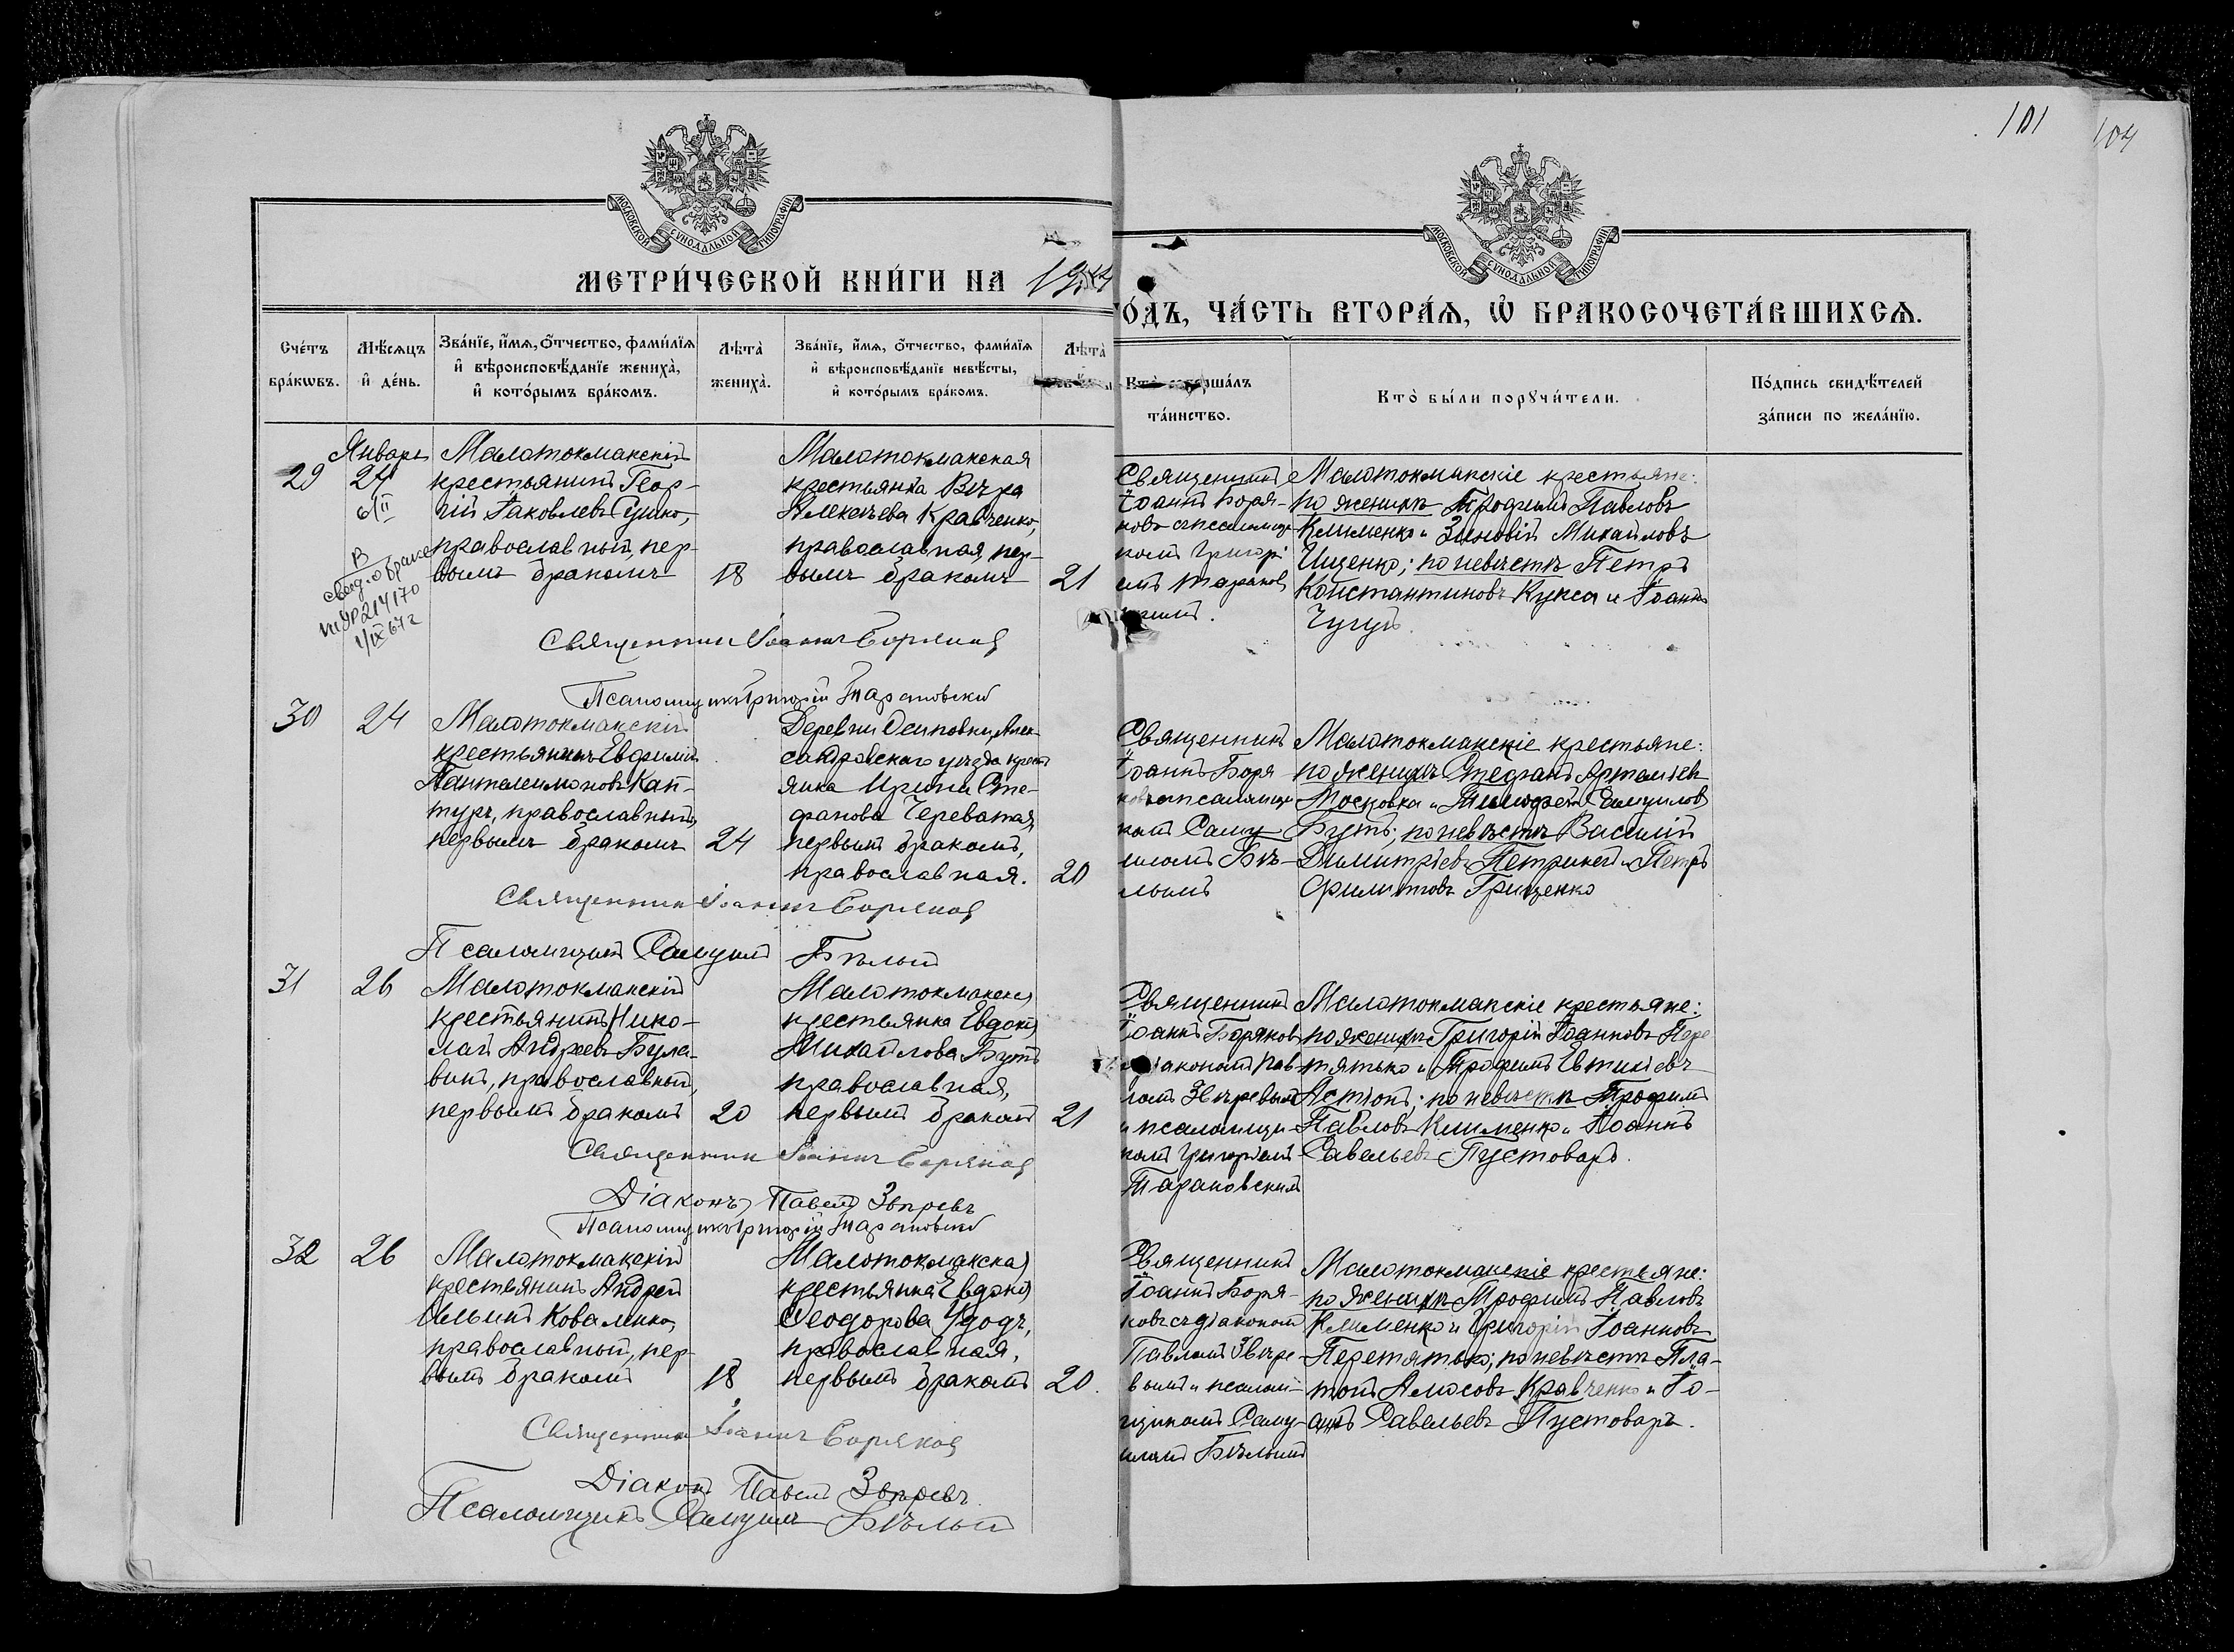 101
104
МОСКОВСКОЙ СѴНОДАЛЬНОЙ ТИПОГРАФІИ
МОСКОВСКОЙ СѴНОДАЛЬНОЙ ТИПОГРАФІИ
МЕТРИ́ЧЕСКОЙ КНИ́ГИ НА
ГО́ДЪ, ЧА́СТЬ ВТОРА́Ѧ, Ѡ҆ БРАКОСОЧЕТА́ВШИХСѦ.
Сче́тъ бра́кѡвъ.
Мѣ́сѧцъ и҆ де́нь.
Зва́нїе, и҆́мѧ, ѻ҆́тчество, фами́лїѧ
и҆ вѣроисповѣ́данїе жениха̀,
и҆ кото́рымъ бра́комъ.
Лѣта̀ жениха̀.
Зва́нїе, и҆́мѧ, ѻ҆́тчество, фами́лїѧ
и҆ вѣроисповѣ́данїе невѣ́сты,
и҆ кото́рымъ бра́комъ.
Лѣта̀
Кто̀ соверша́лъ
та́инство.
Кто̀ бы́ли порꙋчи́тели.
По́дпись свидѣ́телей
за́писи по жела́нїю.
Январь
29
24
6/II
В
свид. о браке
214170
Малотокмакскій
крестьянинъ Геор-
гій Іаковлевъ
православный, пер-
вымъ бракомъ
18
Малотокмакская
крестьянка Вѣра
Алексѣева Кравченко,
православная, пер-
вымъ бракомъ
21
Священникъ
Іоаннъ Боря-
ковъ съ псаломщи-
комъ Григорі-
емъ Таранов
скимъ.
Малотокмакскіе крестьяне:
по женихѣ Трофимъ Павловъ
Клименко и Зиновій Михайловъ
Ищенко; по невѣстѣ Петръ
Константиновъ Кукса и Іоаннъ
Чугуй.
Священникъ Іоаннъ Боряковъ
Псаломщикъ Григорій Тарановскій
30
24
Малотокмакскій
крестьянинъ Евфимій
Пантелеимоновъ Кап-
туръ, православный,
первымъ бракомъ
24
Деревни Осиповки, Алек-
сандровскаго уѣзда крест
янка Ирина Сте-
фанова Череватая,
первымъ бракомъ,
православная.
20
Священникъ
Іоаннъ Боря
ковъ съ псаломщи
комъ Саму-
иломъ Бѣ-
лымъ
Малотокмакскіе крестьяне:
по женихѣ Стефанъ Артеміевъ
Московка и Тимофей Самуиловъ
Бутъ; по невѣстѣ Василій
Димитріевъ Петринъ и Петръ
Филиповъ Грищенко
Священникъ Іоаннъ Боряковъ
Псаломщикъ Самуилъ Бѣлый
31
26
Малотокмакскій
крестьянинъ Нико-
лай Андреевъ Була-
винъ, православный,
первымъ бракомъ
20
Малотокмакская
крестьянка Евдокія
Михайлова Бутъ
православная,
первымъ бракомъ
21
Священникъ
Іоаннъ Боряковъ
съ діакономъ Пав
ломъ Звѣревымъ
и псаломщи-
комъ Григоріемъ
Тарановскимъ
Малотокмакскіе крестьяне:
по женихѣ Григорій Іоанновъ Пере
тятько и Трофимъ Евтихіевъ
по невѣстѣ Трофимъ
Павловъ Клименко и Іоаннъ
Савельевъ Пустоваръ.
Священникъ Іоаннъ Боряковъ
Діаконъ Павелъ Звѣревъ
Псаломщикъ Григорій Тарановскій
32
26
Малотокмакскій
крестьянинъ Андрей
Ильинъ Коваленко,
православный, пер-
вымъ бракомъ
18
Малотокмакская
крестьянка Евдокія
Ѳеодорова Удодъ,
православная,
первымъ бракомъ
20.
Священникъ
Іоаннъ Боря-
ковъ съ діакономъ
Павломъ Звѣре-
вымъ и псалом-
щикомъ Саму-
иломъ Бѣлымъ
Малотокмакскіе крестьяне:
по женихѣ Трофимъ Павловъ
Клименко и Григорій Іоанновъ
Перетятько; по невѣстѣ Пла-
тонъ Амосовъ Кравченко и Іо-
аннъ Савельевъ Пустоваръ.
Священникъ Іоаннъ Боряковъ
Діаконъ Павелъ Звѣревъ
Псаломщикъ Самуилъ Бѣлый